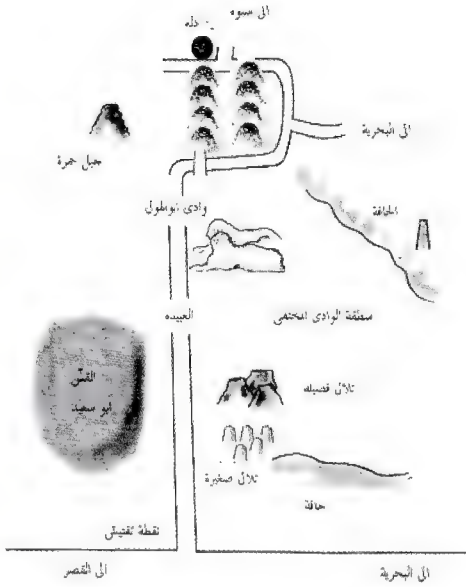 الى سيوه
الى البحرية
جبل حمرة
وادى ابو طول
الحافة
منطقة الوادى المختفى
العبيده
القس
ابو سعيد
تلال فضيله
تلال صغيرة
حافة
نقطة تفتيش
الى القصر
الى البحرية